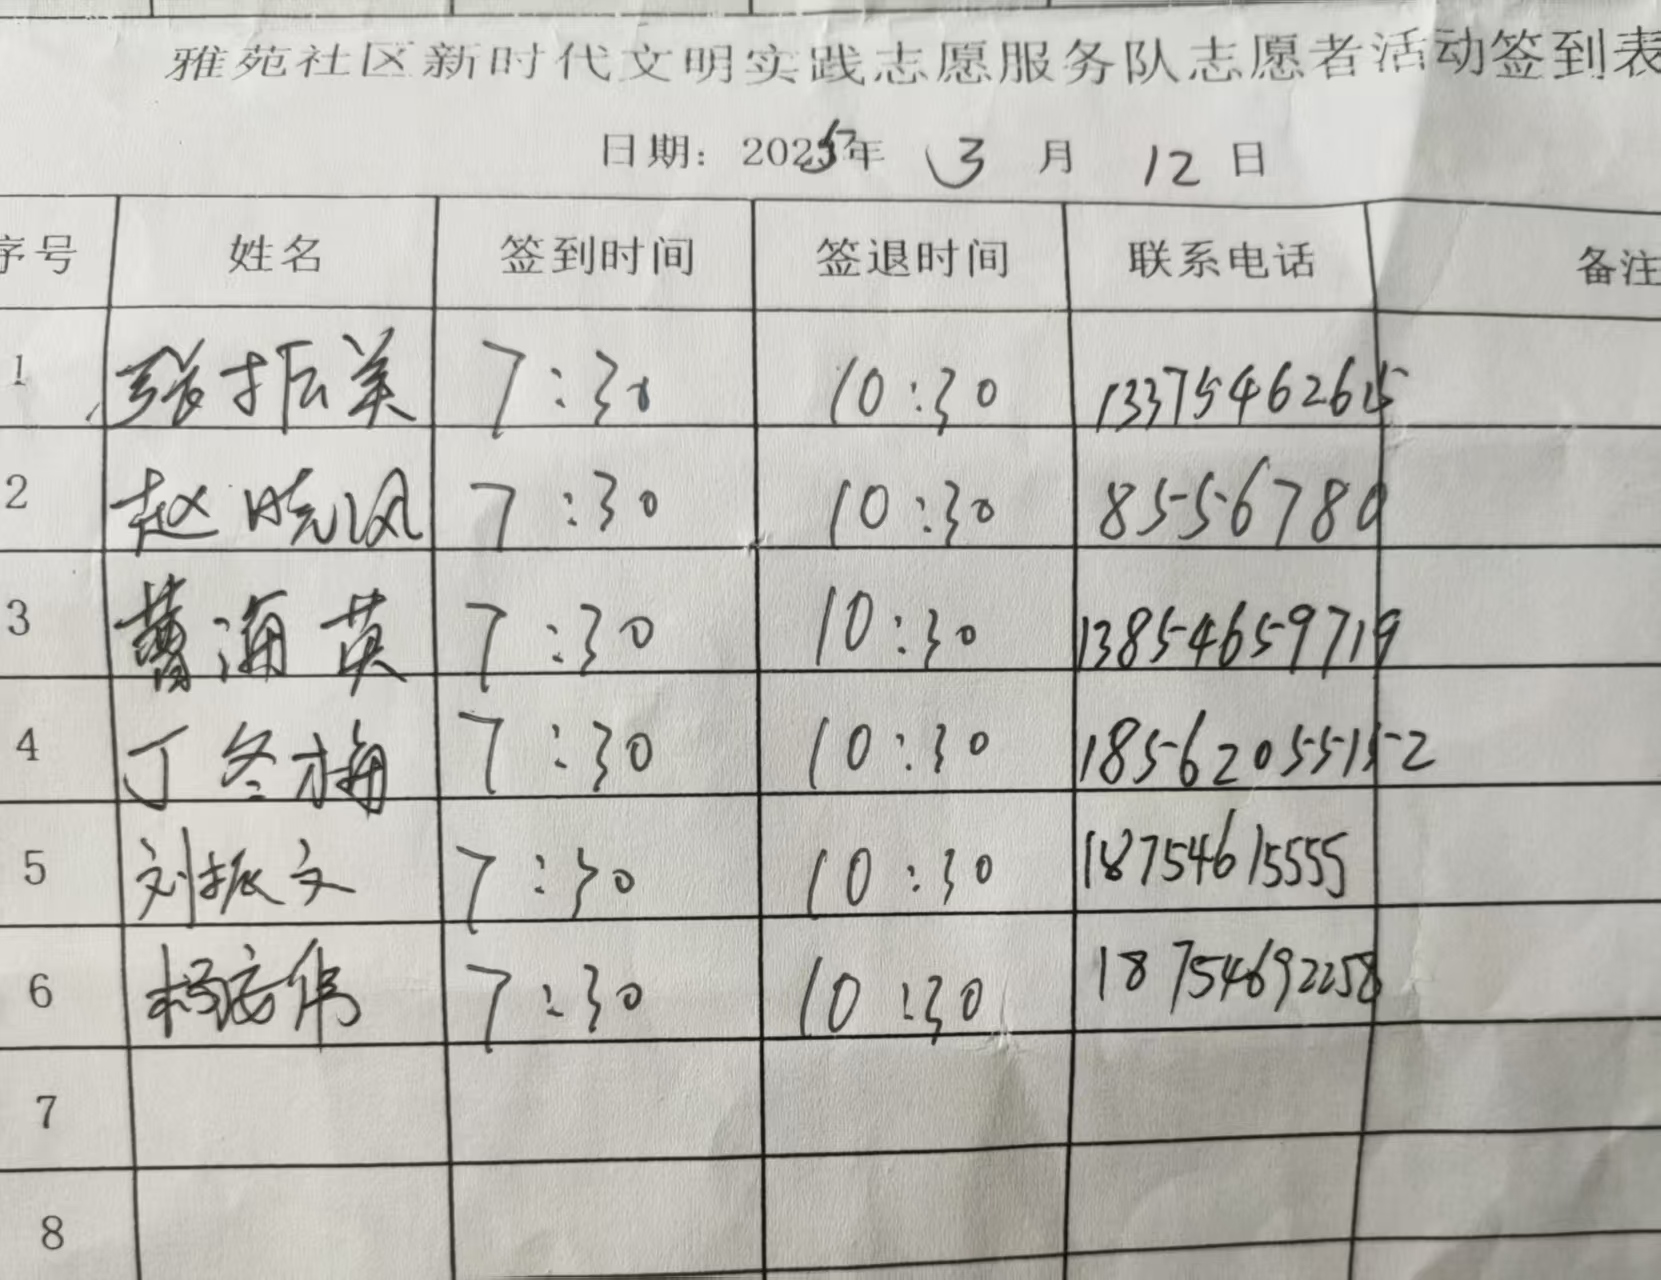 雅苑社区新时代文明实践志愿服务队志愿者活动签到表
日期：2025年 3 月 12 日
序号 姓名 签到时间 签退时间 联系电话 备注
1 张振美 7:30 10:30 13375462615
2 赵晓风 7:30 10:30 8556780
3 曹海英 7:30 10:30 13854659719
4 丁冬梅 7:30 10:30 18562055152
5 刘振文 7:30 10:30 18754615555
6 杨彦伟 7:30 10:30 18754692258
7
8